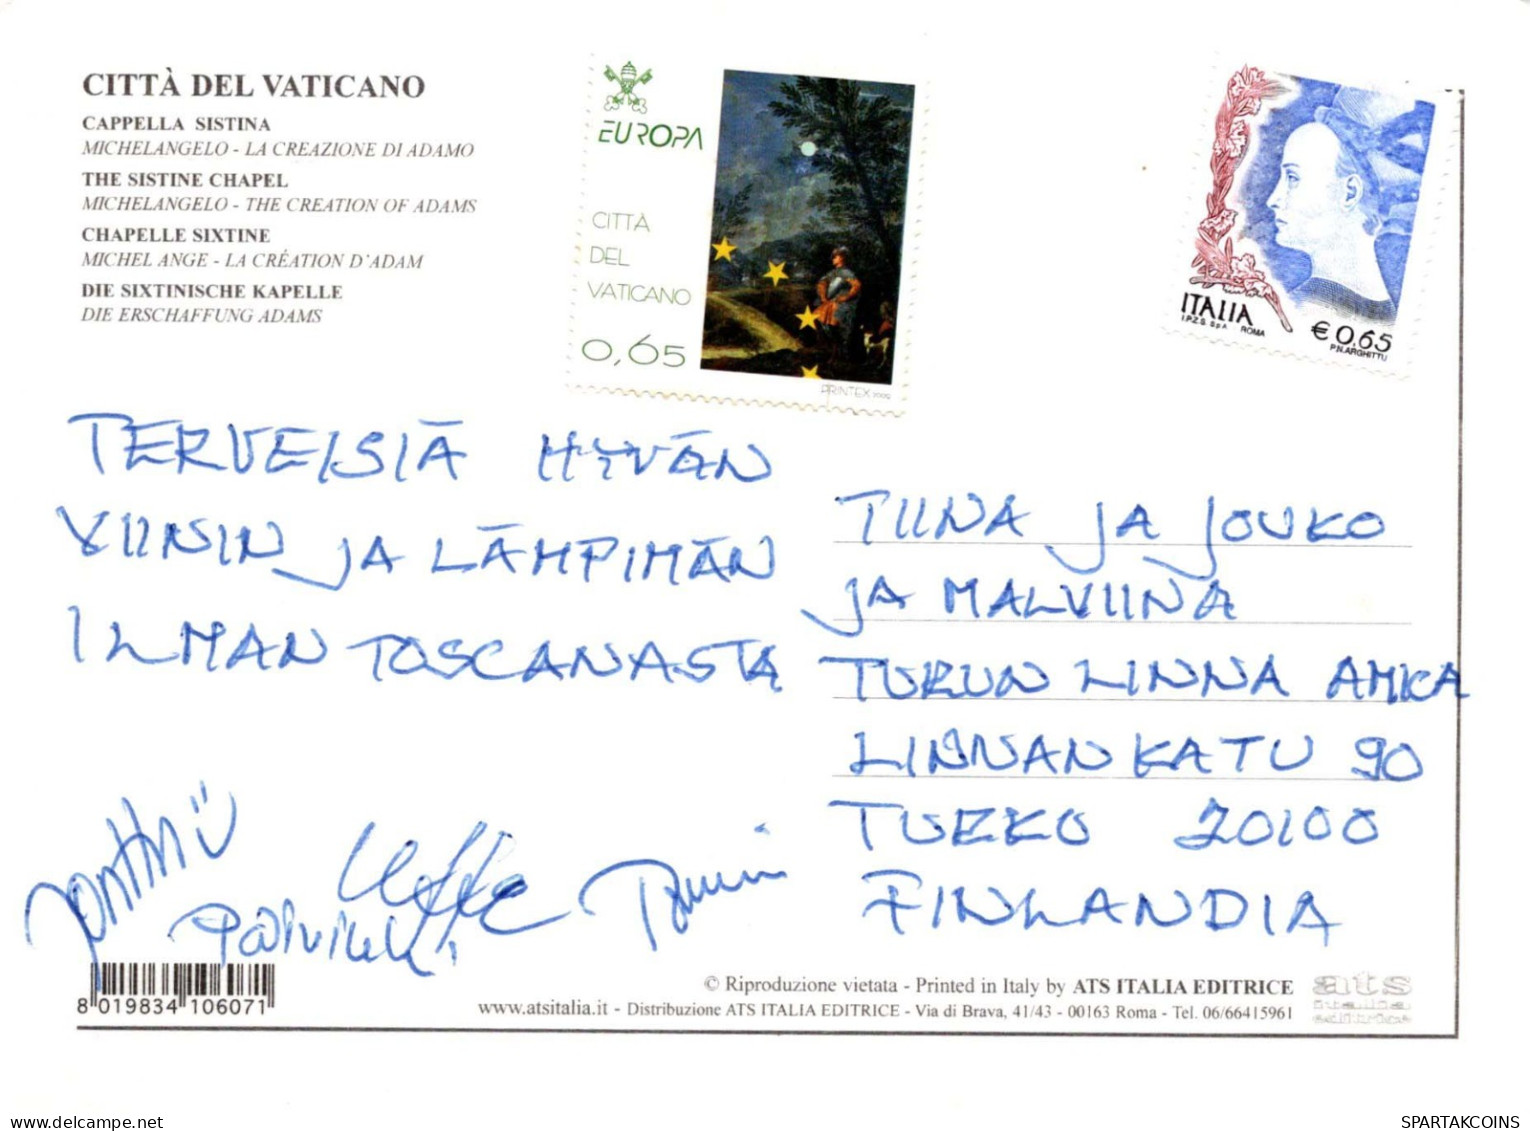 CITTÀ DEL VATICANO
CAPPELLA SISTINA
MICHELANGELO - LA CREAZIONE DI ADAMO
THE SISTINE CHAPEL
MICHELANGELO - THE CREATION OF ADAMS
CHAPELLE SIXTINE
MICHEL ANGE - LA CRÉATION D'ADAM
DIE SIXTINISCHE KAPELLE
DIE ERSCHAFFUNG ADAMS
EUROPA
CITTÀ
DEL
VATICANO
0,65
PRINTEX 2009
ITALIA
I.P.Z.S. SpA ROMA
€ 0,65
P.N.ARGHITTU
TERVEISIÄ HYVÄN
VIININ JA LÄMPIMÄN
ILMAN TOSCANASTA
TIINA JA JOUKO
JA MALVIINA
TURUN LINNA AMICA
LINNANKATU 90
TURKU 20100
FINLANDIA
8 019834 106071
© Riproduzione vietata - Printed in Italy by ATS ITALIA EDITRICE
www.atsitalia.it - Distribuzione ATS ITALIA EDITRICE - Via di Brava, 41/43 - 00163 Roma - Tel. 06/66415961
ats
italia
editrice
SPARTAKCOINS